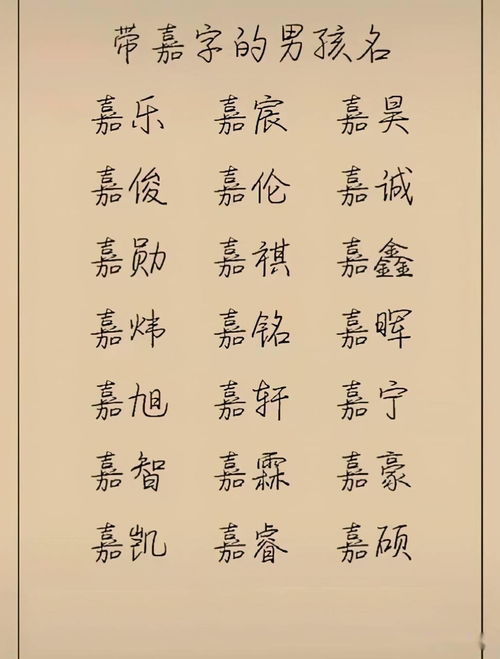 带嘉字的男孩名
嘉乐 嘉宸 嘉昊
嘉俊 嘉伦 嘉诚
嘉勋 嘉祺 嘉鑫
嘉炜 嘉铭 嘉晖
嘉旭 嘉轩 嘉宁
嘉智 嘉霖 嘉豪
嘉凯 嘉睿 嘉硕